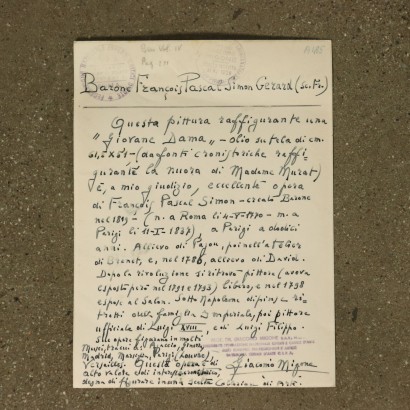 Barone François Pascal Simon Gerard (Sec. Fr.)
Questa pittura raffigurante una
"Giovane Dama" - olio su tela di cm.
61,5x51 - (da fonti cronistoriche raffi-
gurante la nuora di Madame Murat)
È, a mio giudizio, eccellente opera
di François Pascal Simon - creato Barone
nel 1819 - (n. a Roma li 4-5-1770 - m. a
Parigi li 11-I-1837), a Parigi a dodici
anni. Allievo di Pajou, poi nell'atelier
di Brenet, e, nel 1786, allievo di David.
Dopo la rivoluzione si ritrovò pittore (aveva
esposto però nel 1791 e 1793) libero, e nel 1798
espose al Salon. Sotto Napoleone dipinse ri-
tratti della famiglia Imperiale, poi pittore
ufficiale di Luigi XVIII, e di Luigi Filippo.
Sue opere figurano in molti
Musei, tra cui: a
Madrid, Marsiglia, Parigi (Louvre)
Versailles. Questa opera è di
alto valore
degna di figurare in una scelta
Giacomo Migone